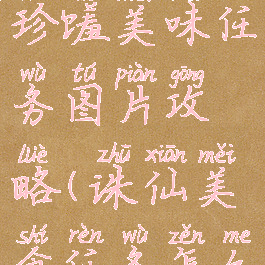 珍馐美味任
wù tú piàn gōng
务图片攻
lüè zhū xiān měi
略(诛仙美
shí rèn wù zěn me
食任务怎么